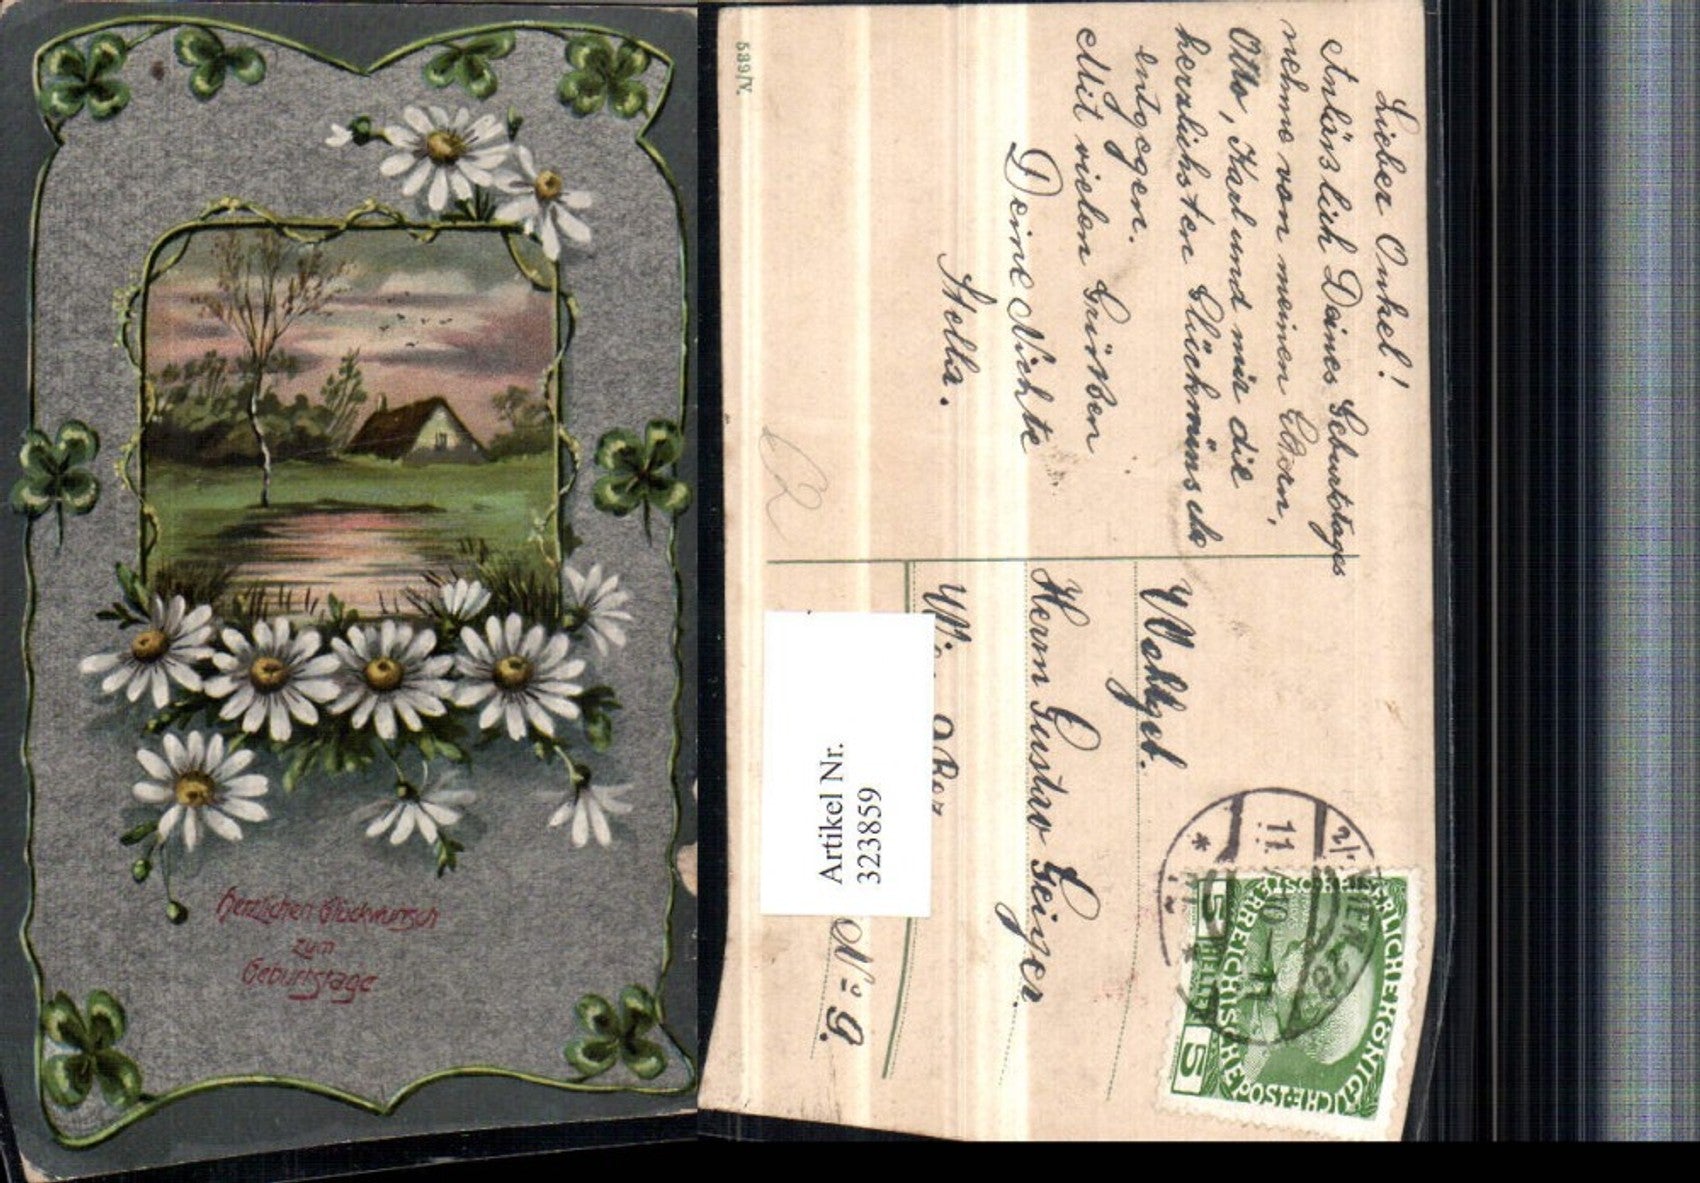 Herzlichen Glückwunsch
zum
Geburtstage
589/V.
Lieber Onkel!
Anlässlich Deines Geburtstages
nehme von meinen Eltern,
Otto, Karl und mir die
herzlichsten Glückwünsche
entgegen.
Mit vielen Grüßen
Deine Nichte
Stella.
Wohlgeb.
Herrn Gustav Geiger
Nº 9.
Artikel Nr.
323859
2
5 HELLER 5